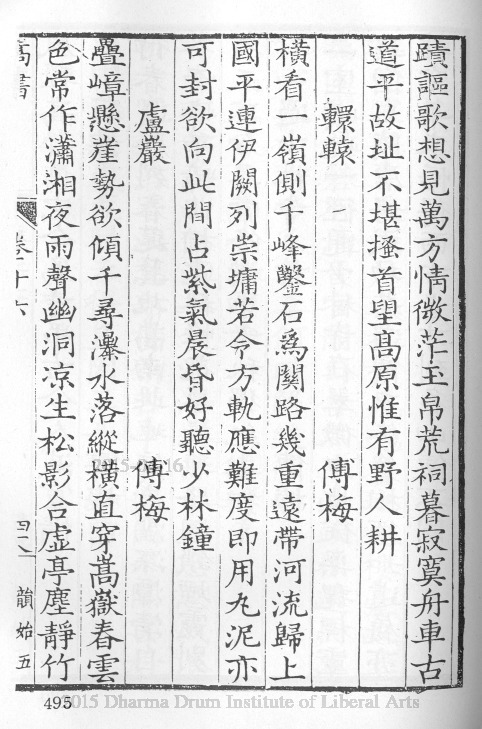 蹟謳歌想見萬方情微茫玉帛荒祠暮寂寞舟車古
道平故址不堪搔首望高原惟有野人耕
轘轅　傅梅
橫看一嶺側千峰鑿石爲關路幾重遠帶河流歸上
國平連伊闕列崇墉若令方軌應難度即用丸泥亦
可封欲向此間占紫氣晨昏好聽少林鐘
盧巖　傅梅
疊嶂懸崖勢欲傾千尋瀑水落縱橫直穿嵩嶽春雲
色常作瀟湘夜雨聲幽洞凉生松影合虛亭塵靜竹
嵩書　卷十六　韻始五
495
2015 Dharma Drum Institute of Liberal Arts